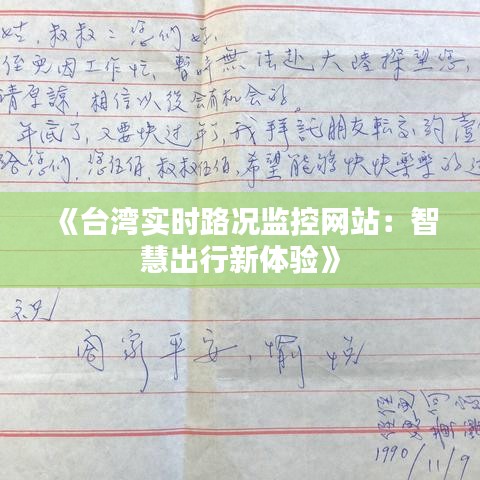 姑,叔叔:您们好,
侄兒因工作忙,暫時無法赴大陸探望您,
请原諒,相信以後会有机会的。
年底了,又要快过年了,我拜託朋友転
给您们,您伍佰,叔叔伍佰,希望能夠快快樂樂的过
《台湾实时路况监控网站：智
慧出行新体验》
祝
阖家平安,愉悦
侄
1990/11/9